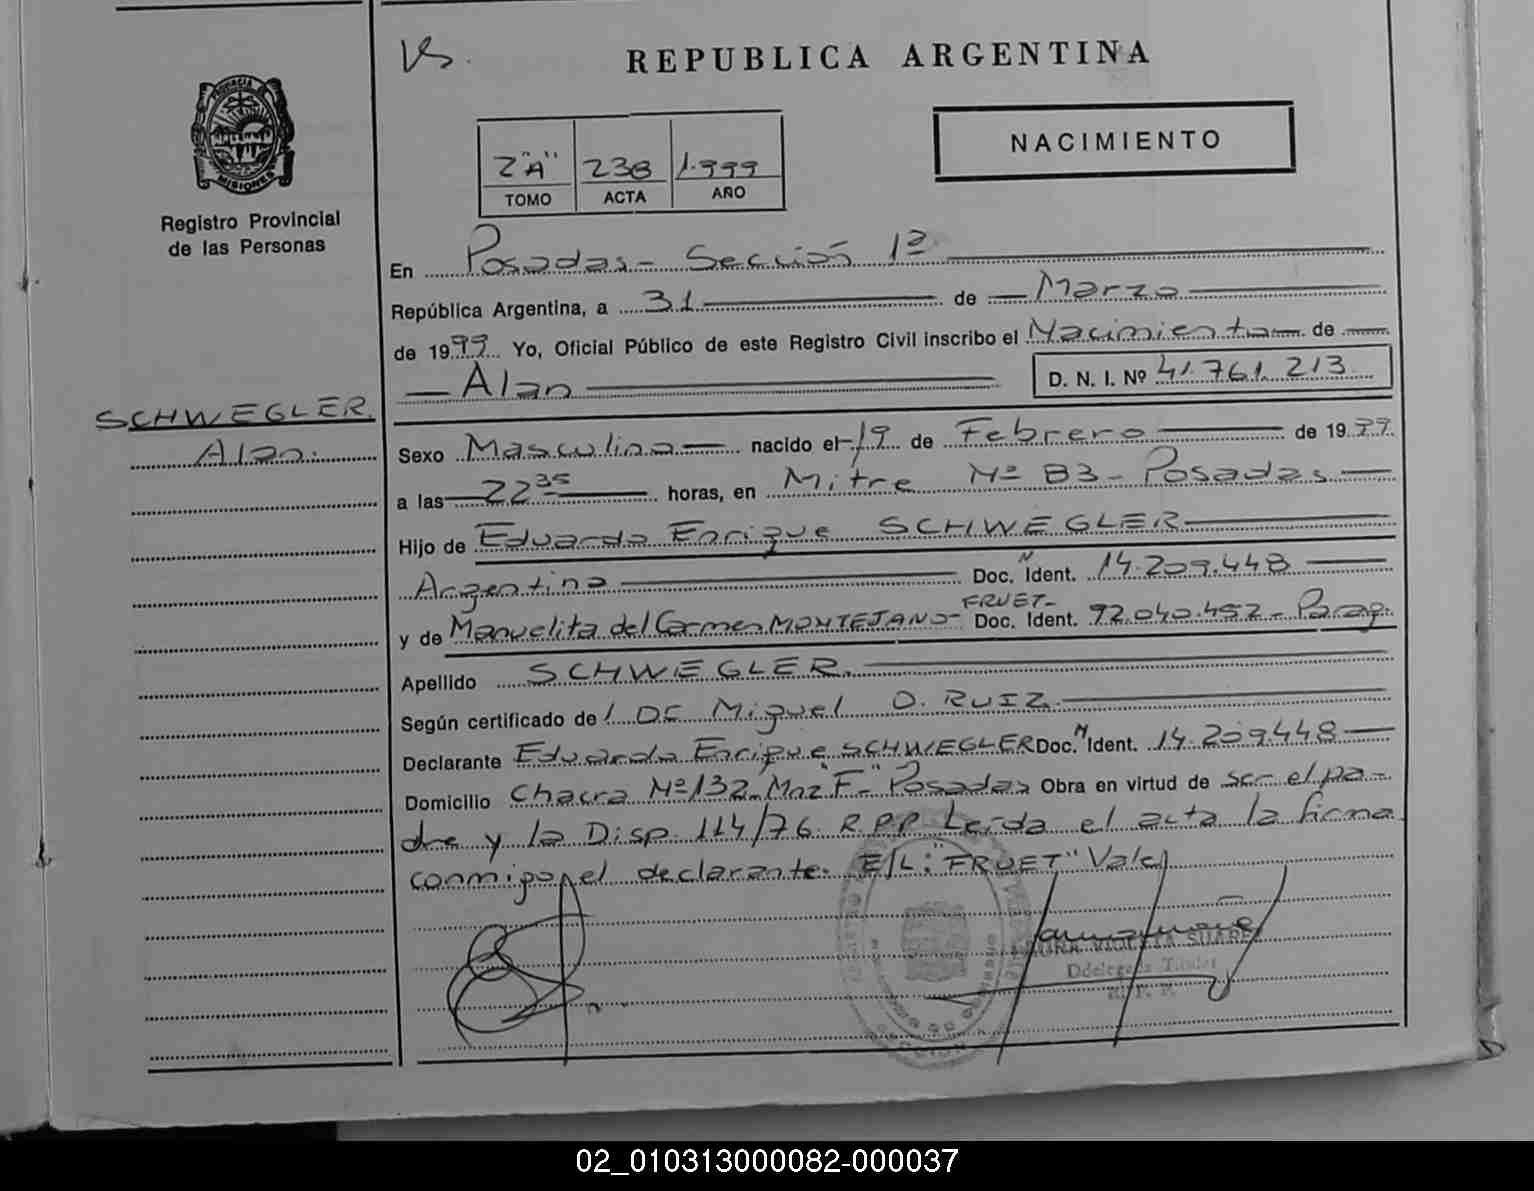 REPUBLICA ARGENTINA
PROVINCIA DE
MISIONES
Registro Provincial
de las Personas
NACIMIENTO
2"A" 238 1.999
TOMO ACTA AÑO
En Posadas - Sección 1ª
República Argentina, a 31 de Marzo
de 1999 Yo, Oficial Público de este Registro Civil inscribo el Nacimiento de
Alan D. N. I. Nº 41.761.213
SCHWEGLER
Alan.
Sexo Masculino nacido el 19 de Febrero de 1999
a las 22 35 horas, en Mitre Nº 83 - Posadas
Hijo de Eduardo Enrique SCHWEGLER
Argentino Doc. N Ident. 14.209.448
FRUET-
y de Manuelita del Carmen MONTEJANO - Doc. Ident. 92.040.452 - Parag.
Apellido SCHWEGLER.
Según certificado de Miguel O. RUIZ
Declarante Eduardo Enrique SCHWEGLER Doc. N Ident. 14.209.448
Domicilio Chacra Nº 132 Mnz "F" Posadas Obra en virtud de ser el pa-
dre y la Disp. 114/76 R.P.P Leída el acta la firma
conmigo el declarante. E/L: "FRUET" Vale
LAURA VIOLETA SUAREZ
Delegada Titular
R. P. P.
02_010313000082-000037